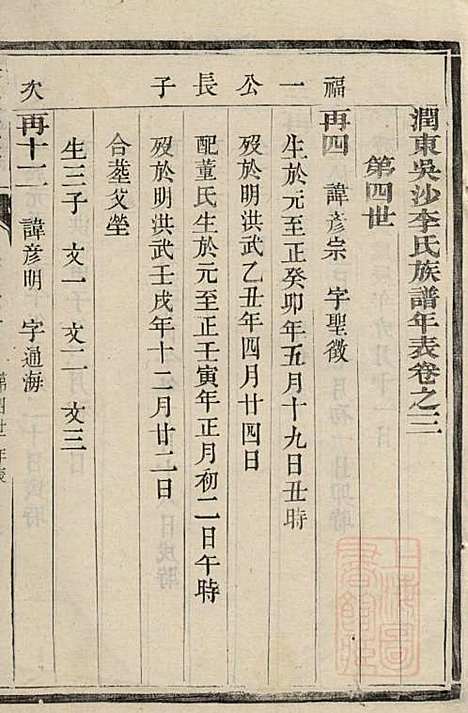 潤東吳沙李氏族譜年表卷之三
第四世
福一公長子
再四 諱彥宗 字聖徵
生於元至正癸卯年五月十九日丑時
歿於明洪武乙丑年四月廿四日
配董氏生於元至正壬寅年正月初二日午時
歿於明洪武壬戌年十二月廿二日
合塟父塋
生三子 文一 文二 文三
次
再十二 諱彥明 字通海
第四世年表
上海圖書館藏